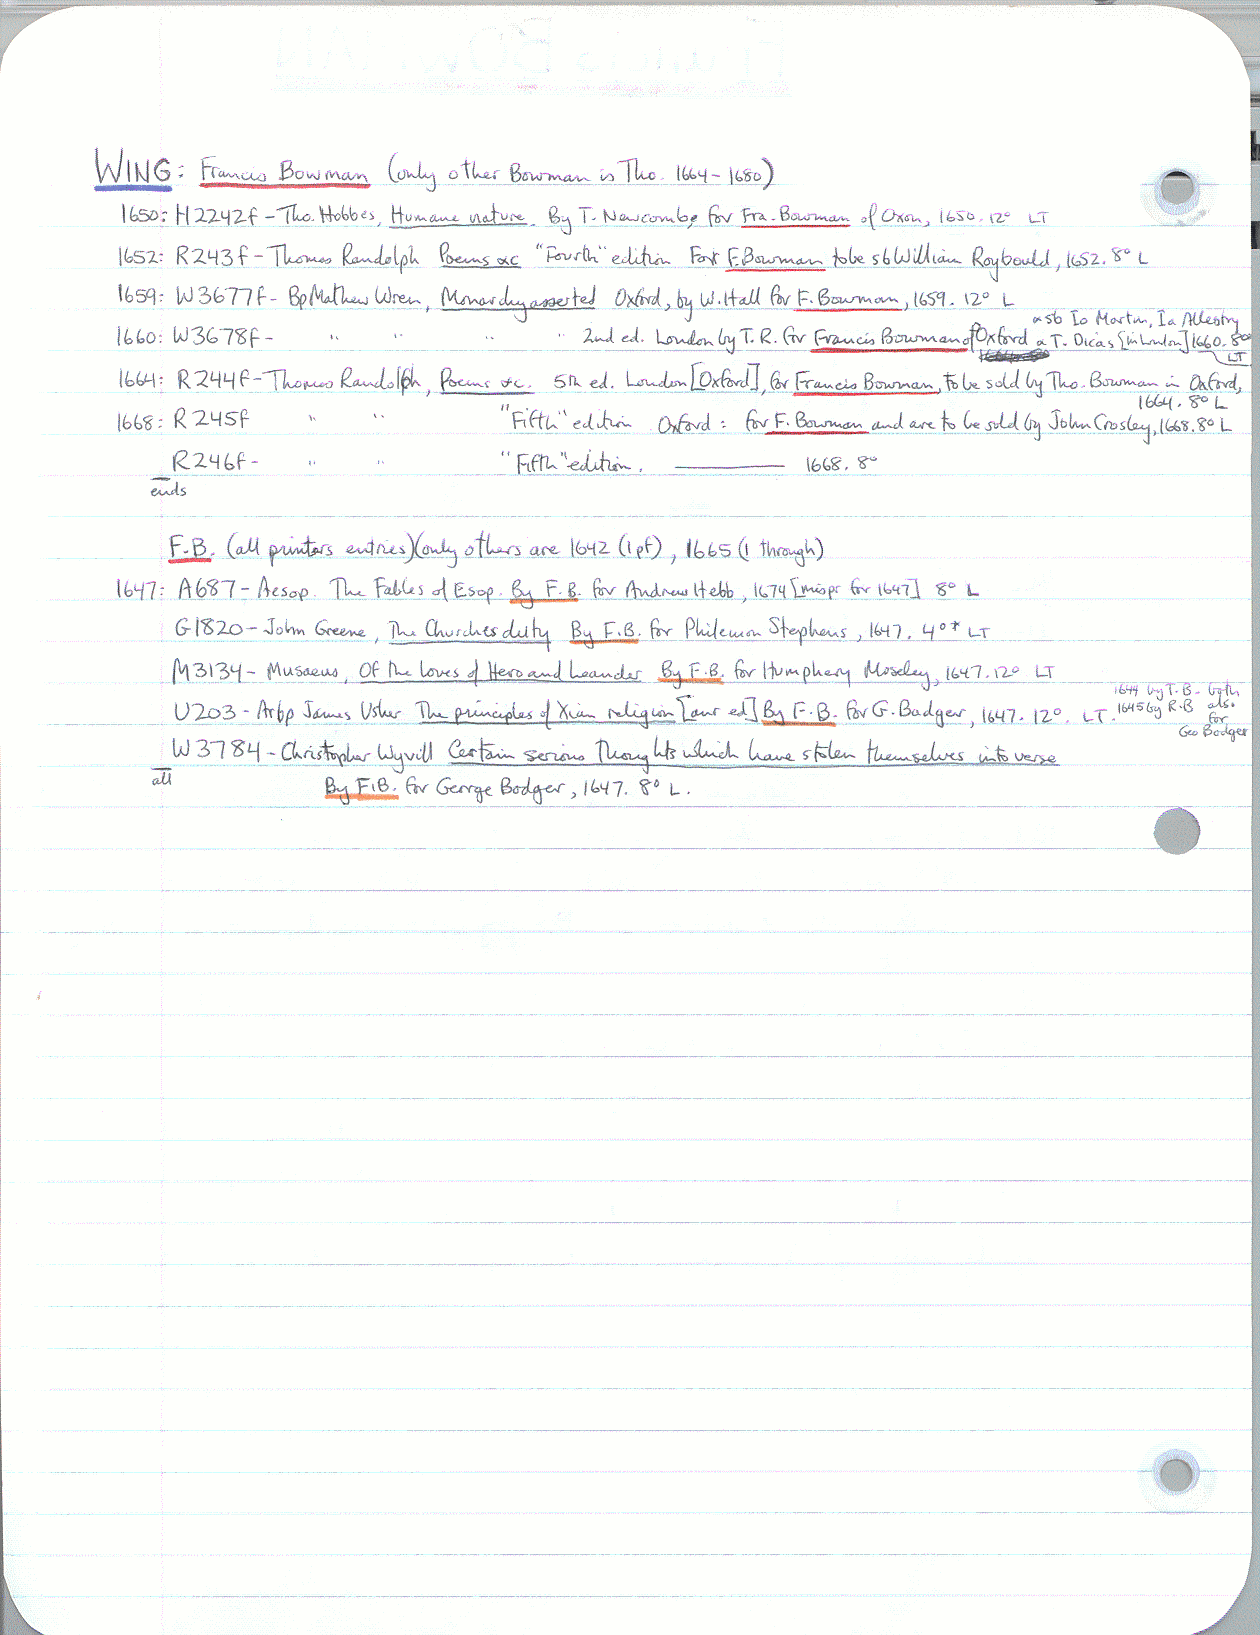 WING: Francis Bowman (only other Bowman is Tho. 1664-1680)
1650: H2242f - Tho. Hobbes, Humane nature. By T. Newcombe, for Fra. Bowman of Oxon, 1650. 12° LT
1652: R243f - Thomas Randolph Poems &c "Fourth" edition For F. Bowman to be sb William Roybould, 1652. 8° L
1659: W3677f - Bp Mathew Wren, Monarchy asserted Oxford, by W. Hall for F. Bowman, 1659. 12° L
& sb Io Martin, Ia Allestry
1660: W3678f - " " " 2nd ed. London by T. R. for Francis Bowman of Oxford & T. Dicas [in London] 1660. 8°
LT
1664: R244f - Thomas Randolph, Poems &c. 5th ed. London [Oxford], for Francis Bowman, to be sold by Tho. Bowman in Oxford,
1664. 8° L
1668: R245f " " "Fifth" edition Oxford: for F. Bowman and are to be sold by John Crosley, 1668. 8° L
R246f - " " "Fifth" edition. 1668. 8°
ends
F.B. (all printers entries) (only others are 1642 (1 pf), 1665 (1 through)
1647: A687 - Aesop. The Fables of Esop. By F.B. for Andrew Hebb, 1674 [mispr for 1647] 8° L
G1820 - John Greene, The Churches duty By F.B. for Philemon Stephens, 1647. 4°* LT
M3134 - Musaeus, Of the loves of Hero and Leander By F.B. for Humphery Moseley, 1647. 12° LT
1644 by T.B. both
U203 - Arbp James Usher The principles of Xian religion [anr ed] By F.B. for G. Badger, 1647. 12°. LT. 1645 by R.B also
for
Geo Badger
W3784 - Christopher Wyvill Certain serious thoughts which have stolen themselves into verse
all
By F.B. for George Badger, 1647. 8° L.